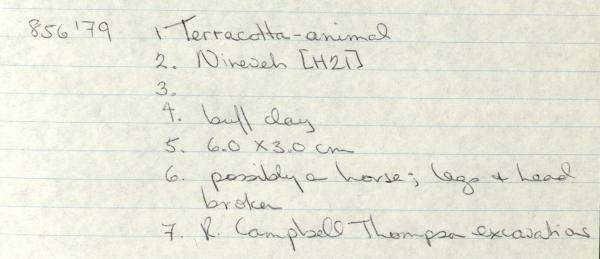 856'79 1. Terracotta-animal
2. Nineveh [H21]
3.
4. buff clay
5. 6.0 x 3.0 cm
6. possibly a horse; legs + head
broken
7. R. Campbell Thompson excavations